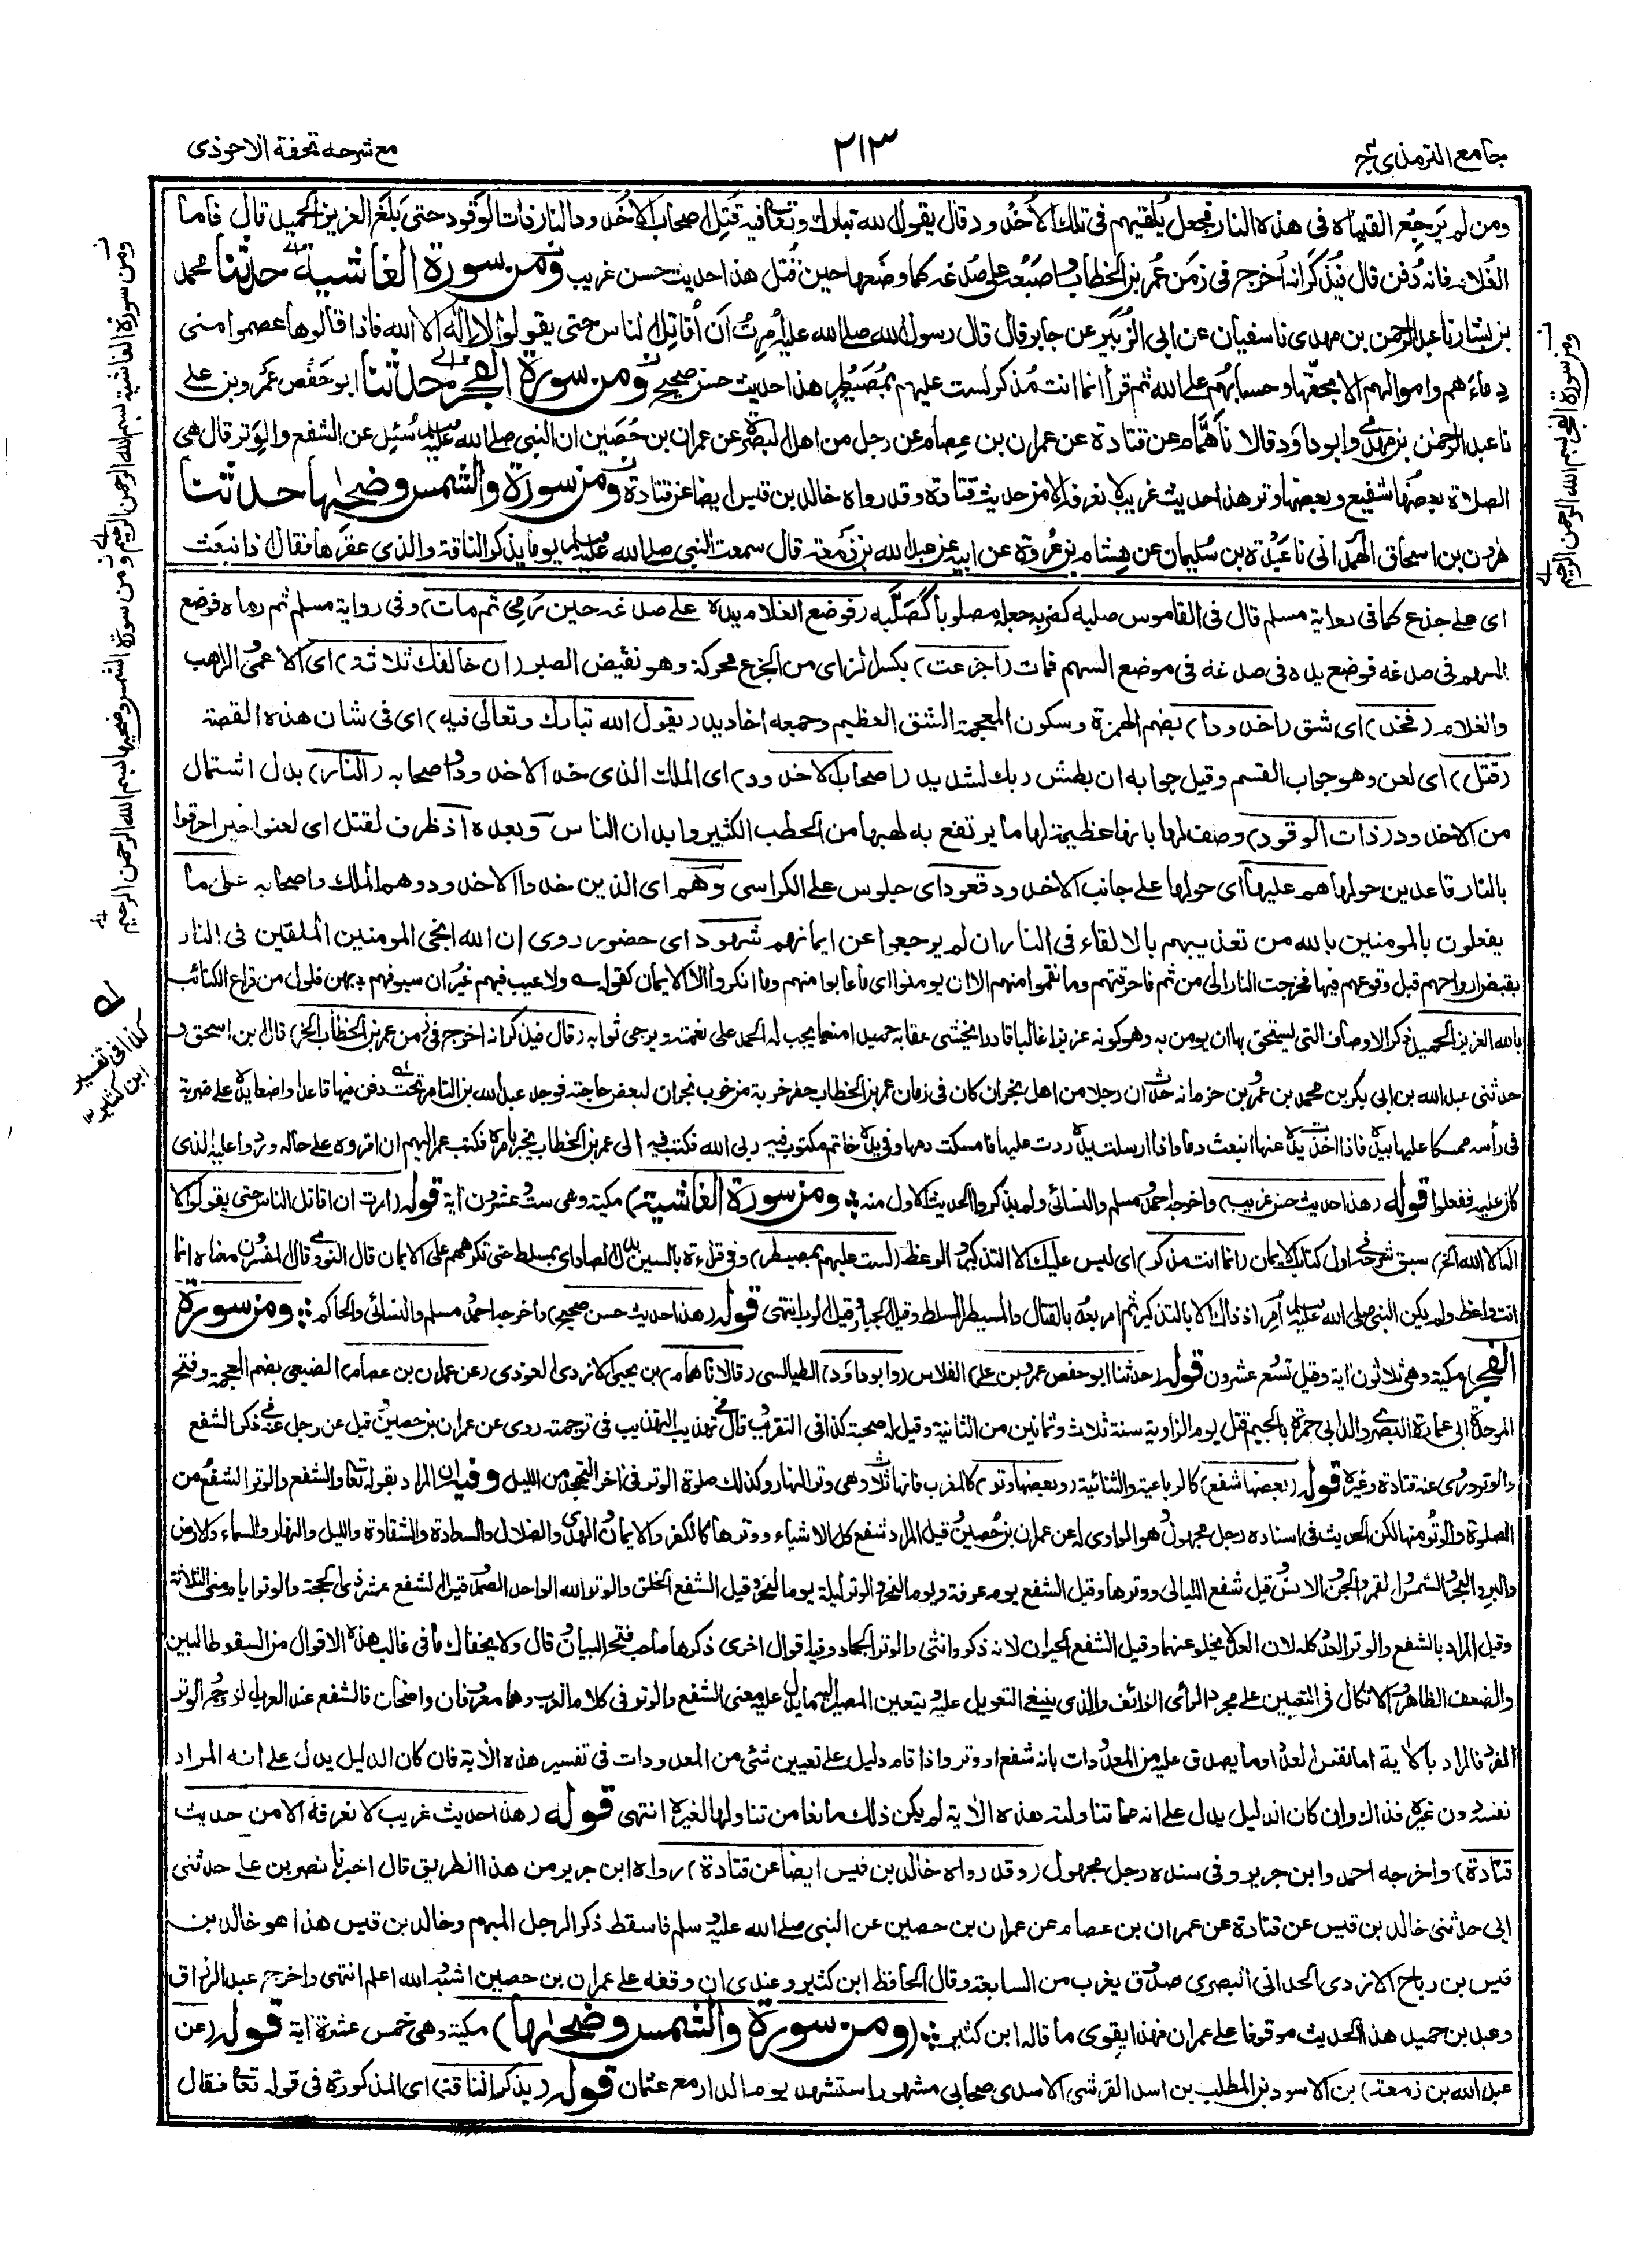 جامع الترمذي ج۴
۲۱۳
مع شرحه تحفة الاحوذى
ومن لم يَرجِع القيناه فى هذه النار فجعل يُلقيهم فى تلك الأُخدُود قال يقول الله تبارك وتعالى فيه قُتِل اصحابُ الاُخْدُود النار ذات الوَقود حتى بلغ العزيز الحميد قال فاما
الغُلام فانه دُفن قال فيُذكَر انه اُخرج فى زمَن عُمر بن الخطاب واصبَعُه على صُدغه كما وضَعها حين قُتل هذا حديث حسن غريب ومن سورة الغاشية حدثنا محمد
بن بشار نا عبد الرحمن بن مهدى نا سفيان عن ابى الزُبَير عن جابر قال قال رسول الله صلى الله عليه اُمِرتُ اَن اُقاتِل الناس حتى يقولوا لا اله الا الله فاذا قالوها عصموا منى
دِماءَهم واموالهم الا بحقّها وحسابُهُم على الله ثم قرأ انما انت مُذكر لست عليهم بمُصَيْطِرٍ هذا حديث حسن صحيح ومن سورة الفجر حدثنا ابو حَفْص عَمرو بن على
نا عبد الرحمٰن بن مهدى وابو داؤد قالا نا همّام عن قتادة عن عمران بن عصام عن رجل من اهل البصرة عن عمران بن حُصَين ان النبى صلى الله عليه وسلم سُئِل عن الشفع والوَتر قال هى
الصلاة بعضُها شفيع وبعضها وتر هذا حديث غريب لا نعرفه الا من حديث قتادة وقد رواه خالد بن قيس ايضا عن قتادة ومن سورة والشمس وضحٰها حدثنا
هٰرون بن اسحاق الهَمدانى نا عَبْدة بن سُليمان عن هشام بن عُروة عن ابيه عن عبد الله بن زَمعة قال سمعت النبى صلى الله عليه وسلم يوما يذكر الناقة والذى عقَرَها فقال اذ انبعَث
اى على جذع كما فى رواية مسلم قال فى القاموس صلبه كضربه جعله مصلوبا كصَلَّبه (فوضع الغلام يده على صدغه حين رُمى ثم مات) وفى رواية مسلم ثم رماه فوضع
السهم فى صدغه فوضع يده فى صدغه فى موضع السهم فمات (اجزعت) بكسر الزاى من الجزع محركة وهو نقيض الصبر (ان خالفك ثلاثة) اى الاعمى والراهب
والغلام (فخد) اى شق (اخدودا) بضم الهمزة وسكون المعجمة الشق العظيم وجمعه اخاديد (يقول الله تبارك وتعالى فيه) اى فى شان هذه القصة
(قتل) اى لعن وهو جواب القسم وقيل جوابه ان بطش ربك لشديد (اصحاب الاخدود) اى الملك الذى خد الاخدود واصحابه (النار) بدل اشتمال
من الاخدود (ذات الوقود) وصف لها بانها عظيمة لها ما يرتفع به لهبها من الحطب الكثير وابدان الناس وبعده اذ ظرف لقتل اى لعنوا حين احرقوا
بالنار قاعدين حولها هم عليها اى حولها على جانب الاخدود قعود اى جلوس على الكراسى وهم اى الذين خدوا الاخدود وهم الملك واصحابه على ما
يفعلون بالمومنين بالله من تعذيبهم بالالقاء فى النار ان لم يرجعوا عن ايمانهم شهود اى حضور روى ان الله انجى المومنين الملقين فى النار
بقبض ارواحهم قبل وقوعهم فيها فخرجت النار الى من ثم فاحرقتهم وما نقموا منهم الا ان يومنوا اى ما عابوا منهم وما انكروا الا الايمان كقوله ؎ ولا عيب فيهم غيرُ ان سيوفهم ؞ بهن فلول من قراع الكتائب
بالله العزيز الحميد ذكر الاوصاف التى يستحق بها ان يومن به وهو كونه عزيزا غالبا قادرا يخشى عقابه حميدا منعما يجب له الحمد على نعمته ويرجى ثوابه (قال فيذكر انه اخرج فى زمن عمر بن الخطاب الخ) قال ابن اسحق و
حدثنى عبد الله بن ابى بكر بن محمد بن عمرو بن حزم انه حدث ان رجلا من اهل نجران كان فى زمان عمر بن الخطاب حفر خربة من خرب نجران لبعض حاجته فوجد عبد الله بن التامر تحت دفن فيها قاعدا واضعا يده على ضربة
فى رأسه ممسكا عليها بيده فاذا اخذت يده عنها انبعث دما واذا ارسلت يده ردت عليها فامسكت دمها وفى يده خاتم مكتوب فيه ربى الله فكتب فيه الى عمر بن الخطاب يخبره بامره فكتب عمر اليهم ان اقروه على حاله وردوا عليه الذى
كان عليه ففعلوا قوله (هذا حديث حسن غريب) واخرجه احمد ومسلم والنسائى ولم يذكروا الحديث الاول منه ؞ (ومن سورة الغاشية) مكية وهى ست وعشرون اية قوله (امرت ان اقاتل الناس حتى يقولوا لا
اله الا الله الخ) سبق شرحه فى اول كتاب الايمان (انما انت مذكر) اى ليس عليك الا التذكير والوعظ (لست عليهم بمصيطر) وفى قراءة بالسين بدل الصاد اى بمسلط حتى تكرههم على الايمان قال النووى قال المفسرون معناه انما
انت واعظ ولم يكن النبى صلى الله عليه وسلم اُمِر اذ ذاك الا بالتذكير ثم امر بعدُ بالقتال والمسيطر المسلط وقيل الجبار وقيل الرب انتهى قوله (هذا حديث حسن صحيح) واخرجه احمد ومسلم والنسائى والحاكم ؞ (ومن سورة
الفجر) مكية وهى ثلاثون اية وقيل تسع عشرون قوله (حدثنا ابو حفص عمرو بن على) الفلاس (وابو داؤد) الطيالسى (قالا نا همام) بن يحيى الازدى العوذى (عن عمران بن عصام) الضبعى بضم المعجمة وفتح
الموحدة ابى عمارة البصرى والد ابى جمرة بالجيم قتل يوم الزاوية سنة ثلاث وثمانين من الثانية وقيل له صحبة كذا فى التقريب قال فى تهذيب التهذيب فى ترجمته روى عن عمران بن حصين وقيل عن رجل عنه فى ذكر الشفع
والوتر وروى عنه قتادة وغيره قوله (بعضها شفع) كالرباعية والثنائية (وبعضها وتر) كالمغرب فانها ثلاث وهى وتر النهار وكذلك صلوة الوتر فى اخر التهجد من الليل وفيه ان المراد بقوله تعالى والشفع والوتر الشفع من
الصلوة والوتر منها لكن الحديث فى اسناده رجل مجهول وهو الراوى له عن عمران بن حصين وقيل المراد شفع كل الاشياء ووترها كالكفر والايمان والهدى والضلال والسعادة والشقاوة والليل والنهار والسماء والارض
والبر والبحر والشمس والقمر والجن والانس وقيل شفع الليالى ووترها وقيل الشفع يوم عرفة ويوم النحر والوتر ليلة يوم النحر وقيل الشفع الخلق والوتر الله الواحد الصمد وقيل الشفع عشر ذى الحجة والوتر ايام منى الثلاثة
وقيل المراد بالشفع والوتر العدد كله لان العدد لا يخلو عنهما وقيل الشفع الحيوان لانه ذكر وانثى والوتر الجماد وفيه اقوال اخرى ذكرها صاحب فتح البيان قال ولا يخفاك ما فى غالب هذه الاقوال من السقوط البين
والضعف الظاهر والاتكال فى التعيين على مجرد الرأى الزائف والذى ينبغى التعويل عليه ويتعين المصير اليه ما يدل عليه معنى الشفع والوتر فى كلام العرب وهما معروفان واضحان فالشفع عند العرب الزوج والوتر
الفرد فالمراد بالاية اما نفس العدد او ما يصدق عليه من المعدودات بانه شفع او وتر واذا قام دليل على تعيين شئ من المعدودات فى تفسير هذه الاية فان كان الدليل يدل على انه المراد
نفسه دون غيره فذاك وان كان الدليل يدل على انه مما تناولته هذه الاية لم يكن ذلك مانعا من تناولها لغيره انتهى قوله (هذا حديث غريب لا نعرفه الا من حديث
قتادة) واخرجه احمد وابن جرير وفى سنده رجل مجهول (وقد رواه خالد بن قيس ايضا عن قتادة) رواه ابن جرير من هذا الطريق قال اخبرنا نصر بن على حدثنى
ابى حدثنى خالد بن قيس عن قتادة عن عمران بن عصام عن عمران بن حصين عن النبى صلى الله عليه وسلم فاسقط ذكر الرجل المبهم وخالد بن قيس هذا هو خالد بن
قيس بن رباح الازدى الحدانى البصرى صدوق يغرب من السابعة وقال الحافظ ابن كثير وعندى ان وقفه على عمران بن حصين اشبه والله اعلم انتهى واخرج عبد الرزاق
وعبد بن حميد هذا الحديث موقوفا على عمران فهذا يقوى ما قاله ابن كثير ؞ (ومن سورة والشمس وضحٰها) مكية وهى خمس عشرة اية قوله (عن
عبد الله بن زمعة) بن الاسود بن المطلب بن اسد القرشى الاسدى صحابى مشهور استشهد يوم الدار مع عثمان قوله (يذكر الناقة) اى المذكورة فى قوله تعالى فقال
ومن سورة الفجر بسم الله الرحمن الرحيم
ومن سورة الغاشية بسم الله الرحمن الرحيم ومن سورة الشمس وضحيها بسم الله الرحمن الرحيم
كذا فى تفسير
ابن كثير ۱۲